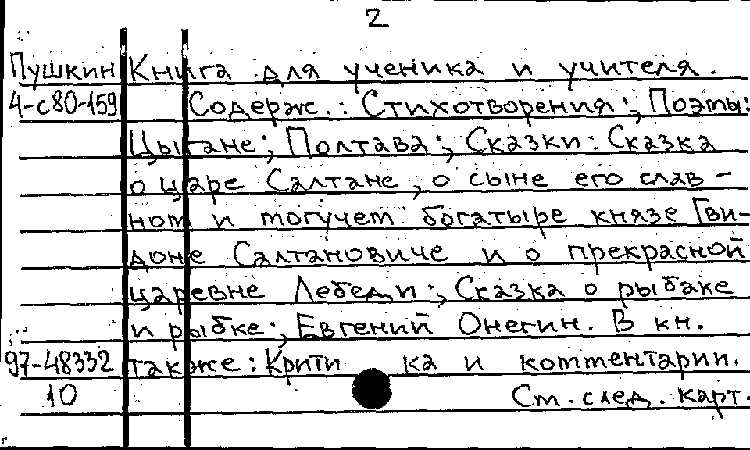 2
Пушкин Книга для ученика и учителя.
4-с80-159 Содерж.: Стихотворения; Поэмы:
Цыгане; Полтава; Сказки: Сказка
о царе Салтане, о сыне его слав-
ном и могучем богатыре князе Гви-
доне Салтановиче и о прекрасной
царевне Лебеди; Сказка о рыбаке
и рыбке; Евгений Онегин. В кн.
97-48332 также: Критика и комментарии.
10 См. след. карт.